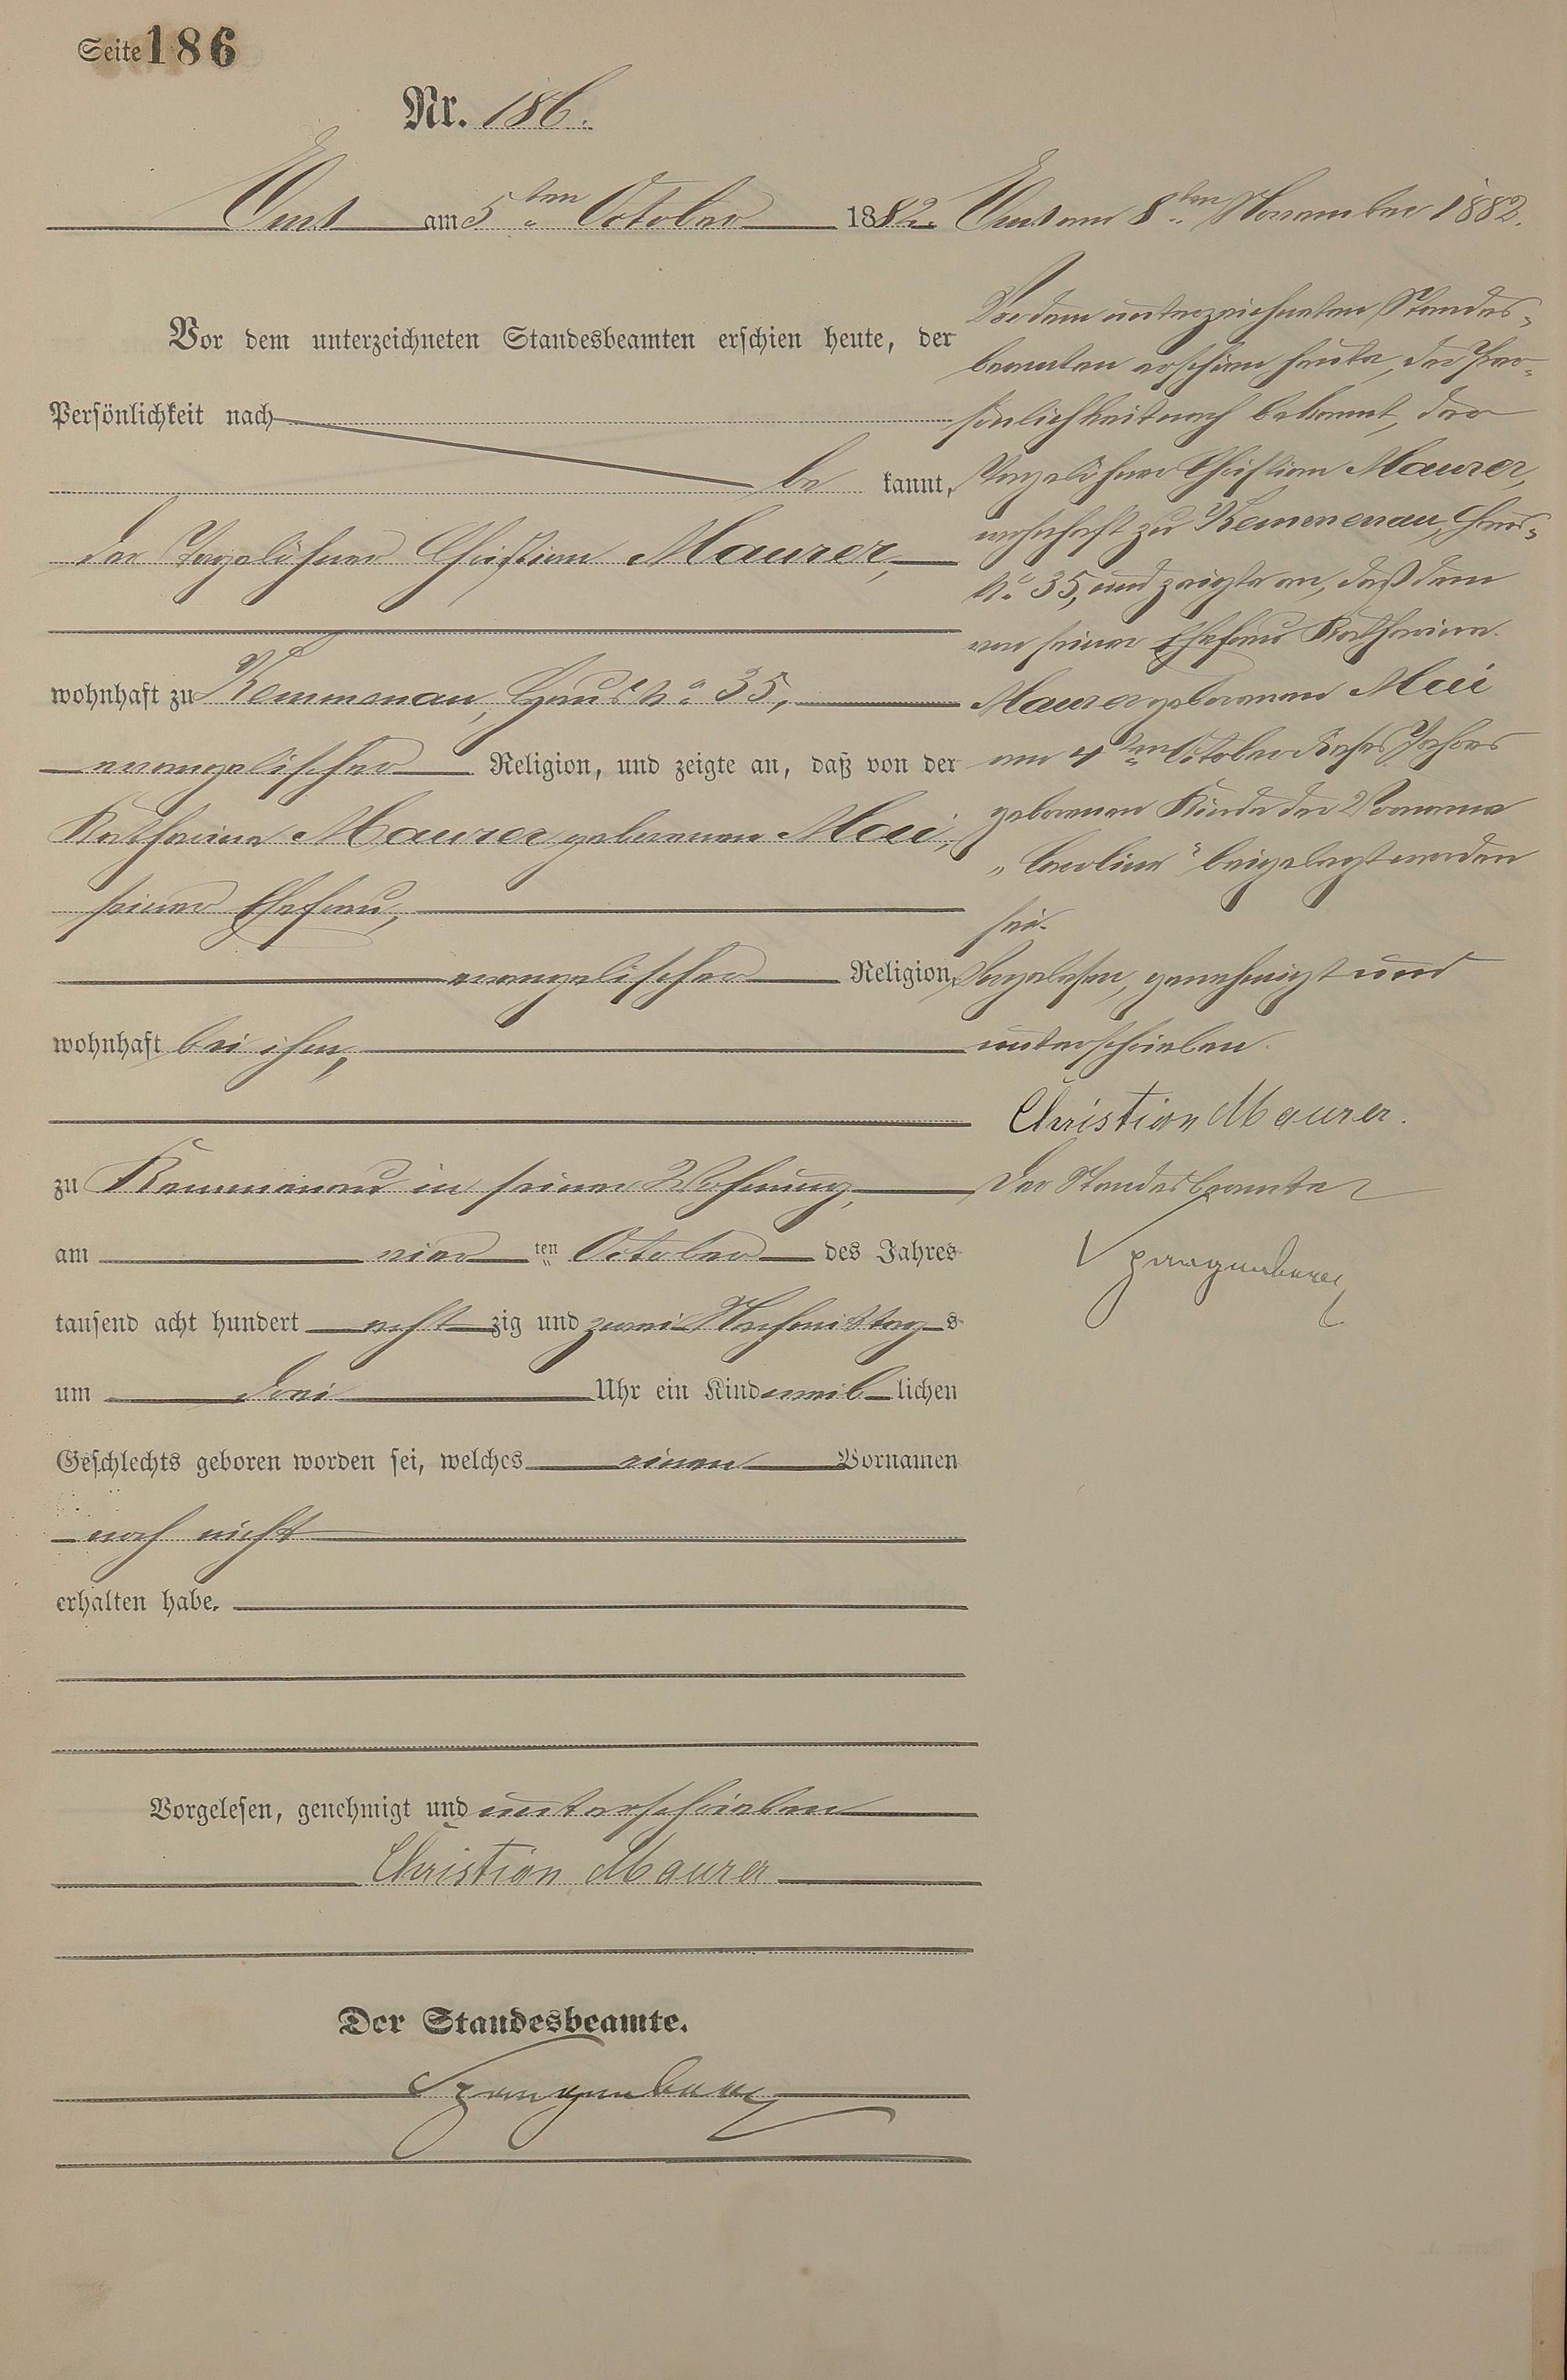 Seite 186
Nr. 186.
Ems am 5ten October 1882.
Vor dem unterzeichneten Standesbeamten erschien heute, der
Persönlichkeit nach
be kannt,
der Tagelöhner Christian Maurer,
wohnhaft zu Kemmenau, Haus No 35,
evangelischer Religion, und zeigte an, daß von der
Katharina Maurer geborenen Mai,
seiner Ehefrau,
evangelischer Religion,
wohnhaft bei ihm,
zu Kemmenau in seiner Wohnung,
am vier ten October des Jahres
tausend acht hundert acht zig und zwei Nachmittags
um drei Uhr ein Kind weib lichen
Geschlechts geboren worden sei, welches einen Vornamen
noch nicht
erhalten habe.
Vorgelesen, genehmigt und unterschrieben
Christian Maurer
Der Standesbeamte.
Ems am 8ten November 1882.
Vor dem unterzeichneten Standes-
beamten erschien heute, der Per-
sönlichkeit nach bekannt, der
Tagelöhner Christian Maurer,
wohnhaft zu Kemmenau, Haus-
No 35, und zeigte an, daß dem
von seiner Ehefrau Katharina
Maurer geborenen Mai
am 4ten October dieses Jahres
geborenen Kinde der Vorname
„Caroline" beigelegt worden
sei.
Vorgelesen, genehmigt und
unterschrieben.
Christian Maurer.
Der Standesbeamte